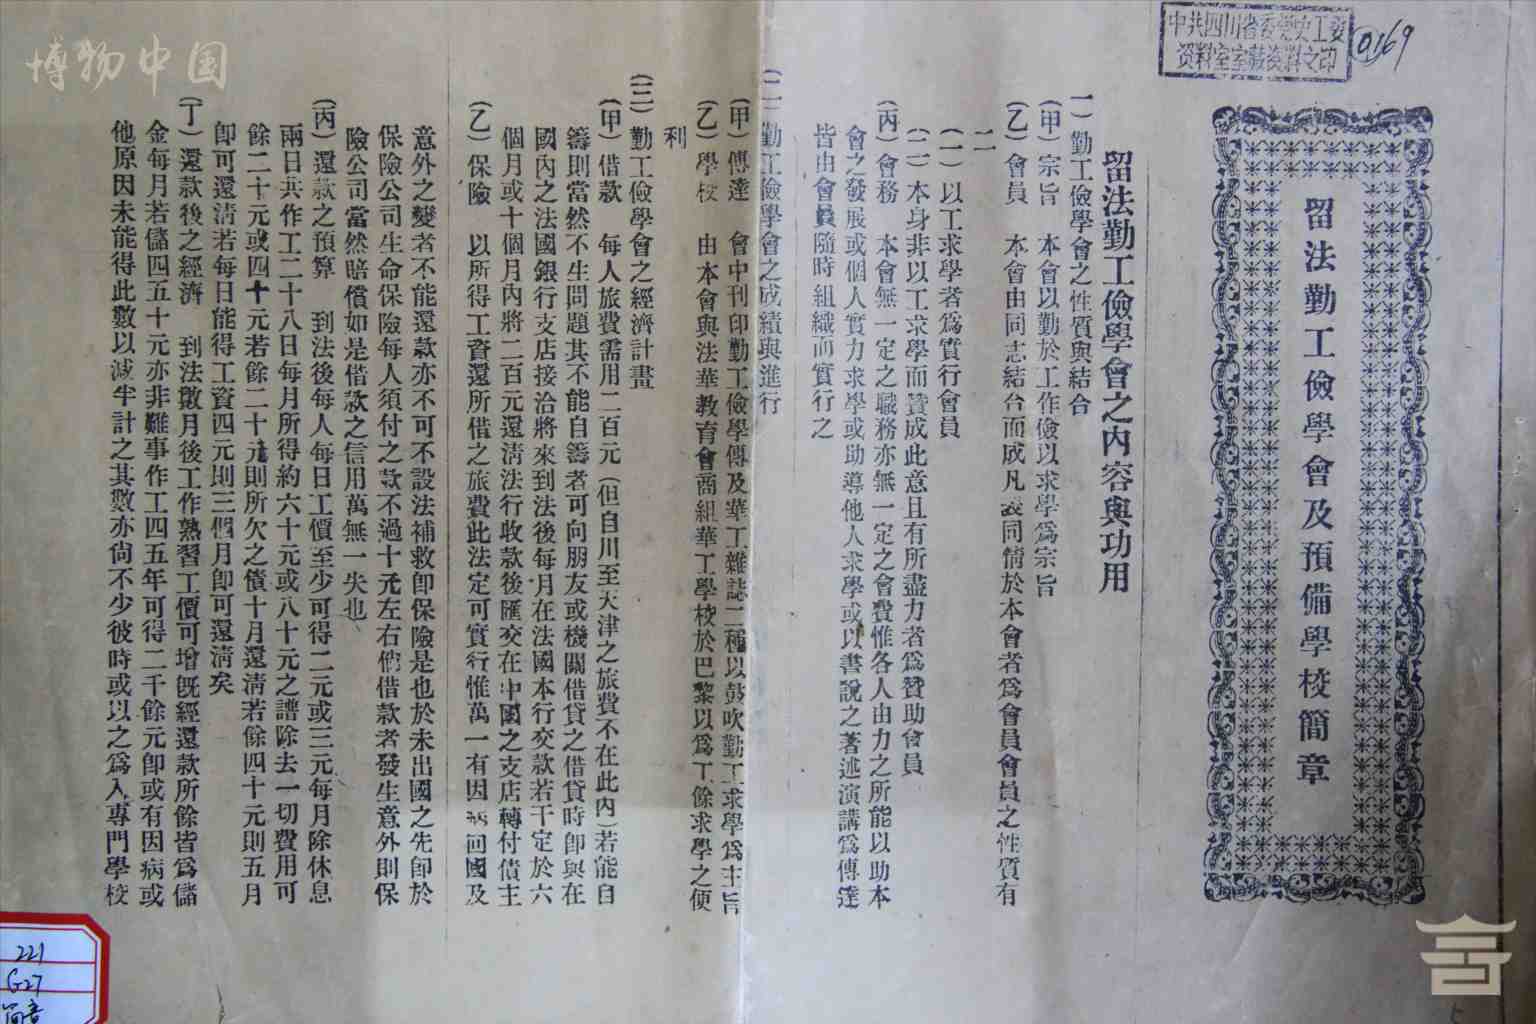 博物中国
中共四川省委党史工委
资料室室藏资料之印
0169
留法勤工儉學會及預備學校簡章
留法勤工儉學會之內容與功用
一)勤工儉學會之性質與結合
(甲)宗旨 本會以勤於工作儉以求學爲宗旨
(乙)會員 本會由同志結合而成凡表同情於本會者爲會員會員之性質有
二
(一)以工求學者爲實行會員
(二)本身非以工求學而贊成此意且有所盡力者爲贊助會員
(丙)會務 本會無一定之職務亦無一定之會費惟各人由力之所能以助本
會之發展或個人實力求學或助導他人求學或以書說之著述演講爲傳達
皆由會員隨時組織而實行之
(二)勤工儉學會之成績與進行
(甲)傳達 會中刊印勤工儉學傳及華工雜誌二種以鼓吹勤工求學爲主旨
(乙)學校 由本會與法華教育會商組華工學校於巴黎以爲工餘求學之便
利
(三)勤工儉學會之經濟計畫
(甲)借款 每人旅費需用二百元(但自川至天津之旅費不在此內)若能自
籌則當然不生問題其不能自籌者可向朋友或機關借貸之借貸時卽與在
國內之法國銀行支店接洽將來到法後每月在法國本行交款若干定於六
個月或十個月內將二百元還清法行收款後匯交在中國之支店轉付債主
(乙)保險 以所得工資還所借之旅費此法定可實行惟萬一有因病回國及
意外之變者不能還款亦不可不設法補救卽保險是也於未出國之先卽於
保險公司生命保險每人須付之款不過十元左右他借款者發生意外則保
險公司當然賠償如是借款之信用萬無一失也
(丙)還款之預算 到法後每人每日工價至少可得二元或三元每月除休息
兩日共作工二十八日每月所得約六十元或八十元之譜除去一切費用可
餘二十元或四十元若餘二十元則所欠之債十月還清若餘四十元則五月
卽可還清若每日能得工資四元則三個月卽可還清矣
(丁)還款後之經濟 到法數月後工作熟習工價可增旣經還款所餘皆爲儲
金每月若儲四五十元亦非難事作工四五年可得二千餘元卽或有因病或
他原因未能得此數以減半計之其數亦尙不少彼時或以之爲入專門學校
221
G27
简章